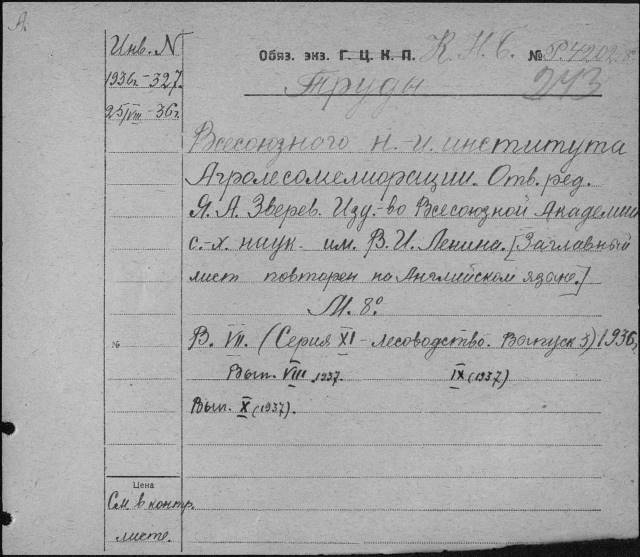 А.
Инв. N
1936г.-327.
25/VIII-36г.
Обяз. экз. Г. Ц. К. П. К. Н. Б. № Р.4202
Труды 243
Всесоюзного н. и. института
Агролесомелиорации. Отв. ред.
Я. А. Зверев. Изд-во Всесоюзной Академии
с.-х. наук им. В. И. Ленина. [Заглавный
лист повторен на Английском языке.]
М. 8°
№ В. VII. (Серия XI - лесоводство. Выпуск 3) 1936,
Вып. VIII 1937. IX (1937)
Вып. X (1937).
Цена
См. в контр.
листе.